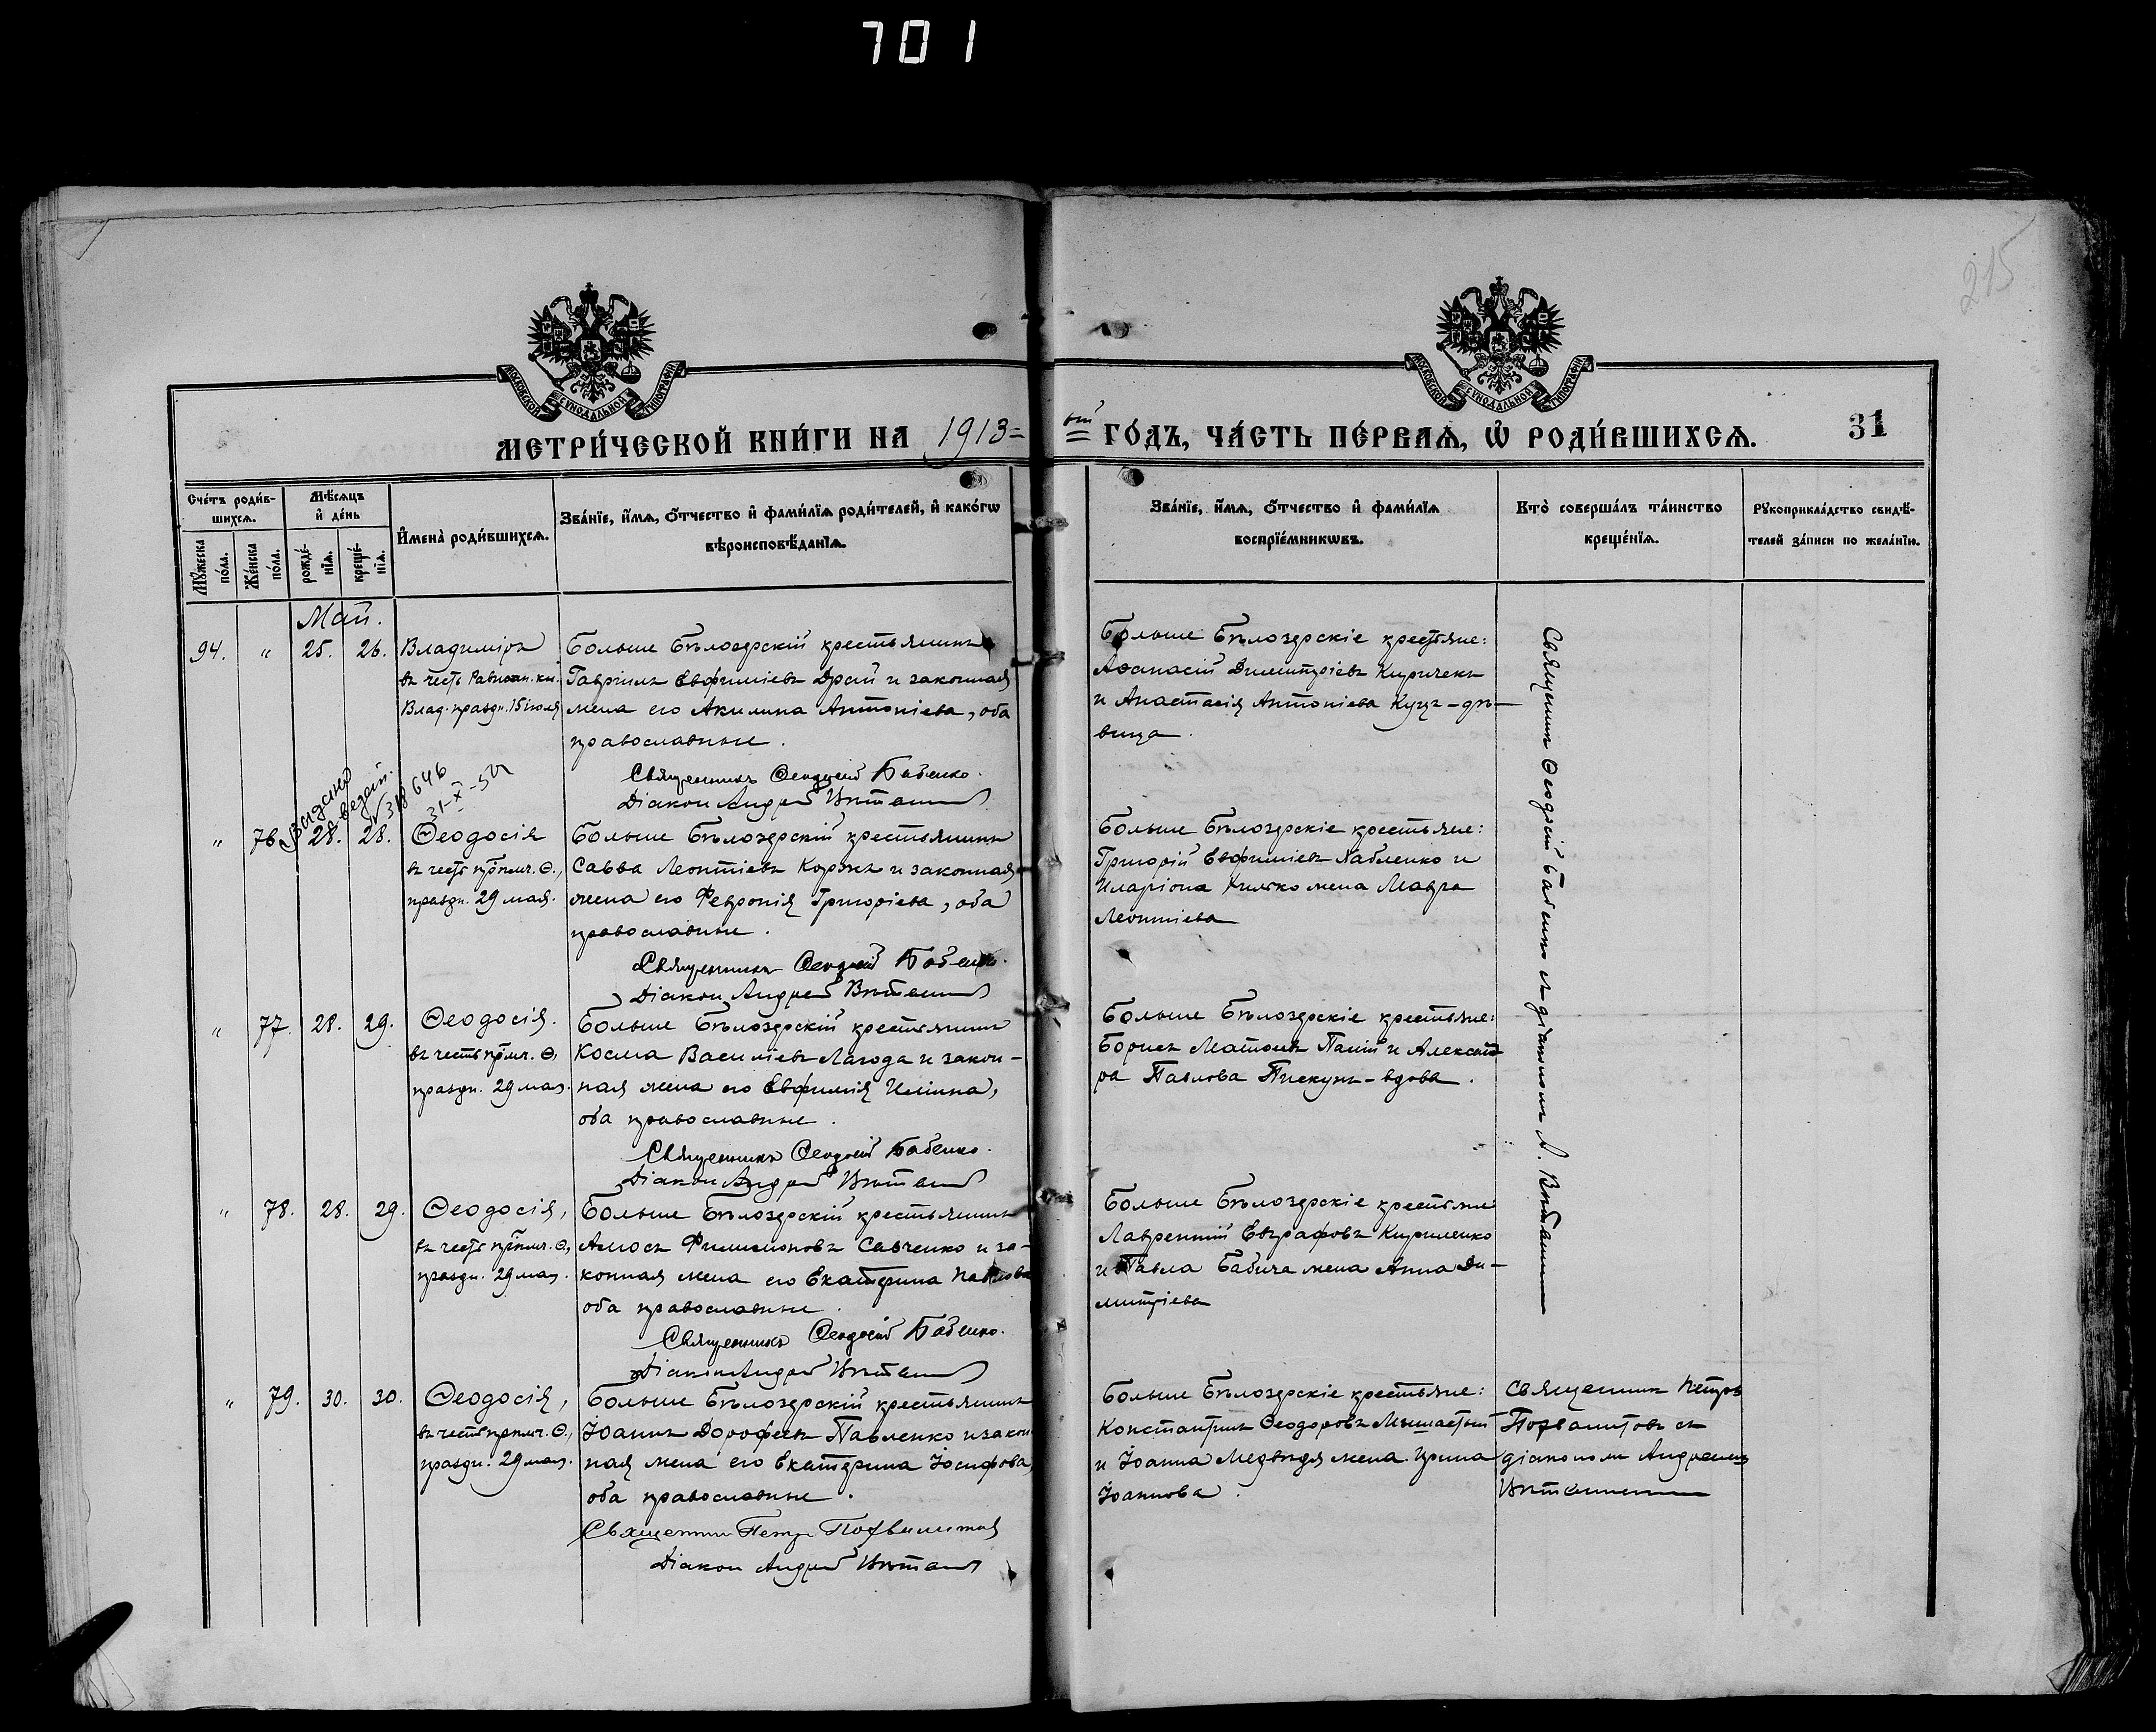 701
215
МОСКОВСКОЙ СѴНОДАЛЬНОЙ ТИПОГРАФІИ
МОСКОВСКОЙ СѴНОДАЛЬНОЙ ТИПОГРАФІИ
МЕТРИ́ЧЕСКОЙ КНИ́ГИ НА 1913= ый ГО́ДЪ, ЧА́СТЬ ПЕ́РВАѦ, Ѡ҆ РОДИ́ВШИХСѦ.
31
Сче́тъ роди́в-
шихсѧ.
Мѣ́сѧцъ
и҆ де́нь
Мꙋ́жеска по́ла.
Же́нска по́ла.
рожде́-
нїѧ.
креще́-
нїѧ.
И҆мена̀ роди́вшихсѧ.
Зва́нїе, и҆́мѧ, ѻ҆́тчество и҆ фами́лїѧ роди́телей, и҆ како́гѡ
вѣроисповѣ́данїѧ.
Зва́нїе, и҆́мѧ, ѻ҆́тчество и҆ фами́лїѧ
воспрїе́мникѡвъ.
Кто̀ соверша́лъ та́инство
креще́нїѧ.
Рꙋкоприкла́дство свидѣ́-
телей за́писи по жела́нїю.
Май.
94. " 25. 26.
Владиміръ
въ честь Равноап. кн.
Влад. праздн. 15 іюля
Больше Бѣлозерскій крестьянинъ
Гавріилъ Евфиміевъ Драй и законная
жена его Акилина Антоніева, оба
православные.
Священникъ Ѳеодосій Бабенко.
Діакон Андрей
Больше Бѣлозерскіе крестьяне:
Аѳанасій Димитріевъ Киричекъ
и Анастасія Антоніева Куцъ-дѣ-
вица.
Священник Ѳеодосій Бабенко съ діаконом А.
Выдано
свидет.
318646
31-X-52
" 76 28. 28.
Ѳеодосія
въ честь прпмч. Ѳ.,
праздн. 29 мая.
Больше Бѣлозерскій крестьянинъ
Савва Леонтіевъ Коржъ и законная
жена его Февронія Григоріева, оба
православные.
Священникъ Ѳеодосій Бабенко.
Діакон Андрей
Больше Бѣлозерскіе крестьяне:
Григорій Евфиміевъ Павленко и
Иларіона жена Мавра
Леонтіева
" 77. 28. 29.
Ѳеодосія.
въ честь прмч. Ѳ,
праздн. 29 мая.
Больше Бѣлозерскій крестьянинъ
Косма Василіевъ Лагода и закон-
ная жена его Евфимія Иліина,
оба православные.
Священникъ Ѳеодосій Бабенко.
Діакон Андрей
Больше Бѣлозерскіе крестьяне:
Борисъ и Александ
ра Павлова Пискунъ-вдова.
" 78. 28. 29.
Ѳеодосія,
въ честь прпмч. Ѳ.,
праздн. 29 мая.
Больше Бѣлозерскій крестьянинъ
Амосъ Филимоновъ Савченко и за-
конная жена его Екатерина Павлова
оба православные.
Священникъ Ѳеодосій Бабенко.
Діакон Андрей
Больше Бѣлозерскіе крестьяне
Лаврентій Евграфовъ Кириленко
и Павла Бабича жена Анна Ди-
митріева
" 79. 30. 30.
Ѳеодосія,
въ честь прпмч. Ѳ.,
праздн. 29 мая.
Больше Бѣлозерскій крестьянинъ
Іоаннъ Дороѳеевъ Павленко и закон
ная жена его Екатерина Іосифова,
оба православные.
Священник Петръ
Діакон Андрей
Больше Бѣлозерскіе крестьяне:
Константинъ Ѳеодоровъ Мышастый
и Іоанна Медвѣдя жена Ирина
Іоаннова.
Священник Петръ
съ
діакономъ Андреемъ